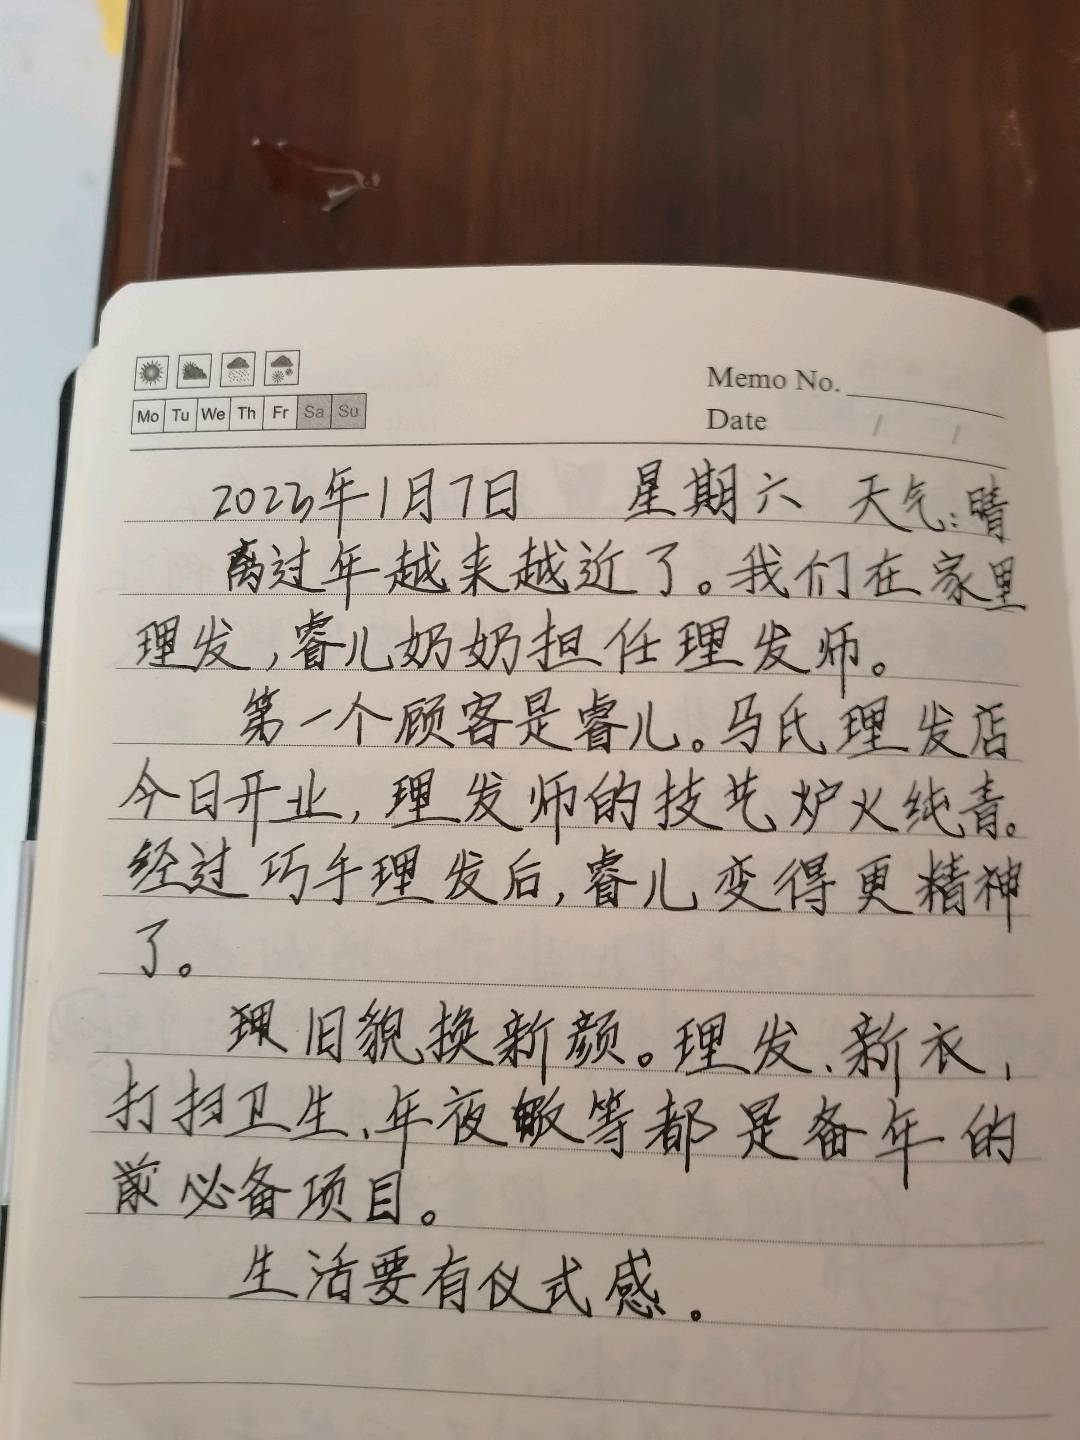 Memo No.
Mo Tu We Th Fr Sa Su
Date / /
2023年1月7日 星期六 天气:晴
离过年越来越近了。我们在家里
理发,睿儿奶奶担任理发师。
第一个顾客是睿儿。马氏理发店
今日开业,理发师的技艺炉火纯青。
经过巧手理发后,睿儿变得更精神
了。
理旧貌换新颜。理发、新衣,
打扫卫生、年夜饭等都是备年的
前必备项目。
生活要有仪式感。